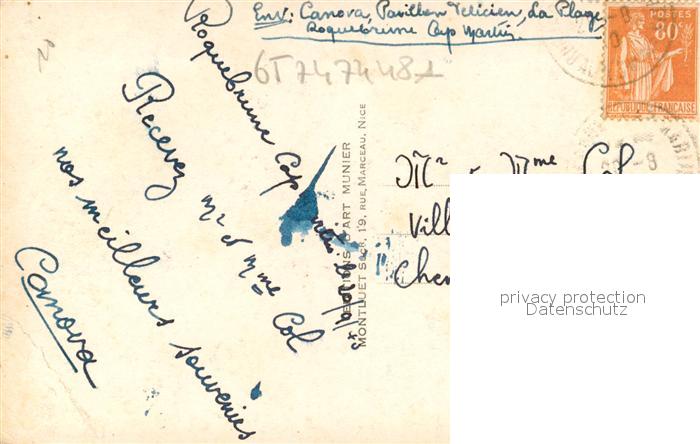 Env: Canova, Pavillon Felicien, La Plage,
Roquebrune Cap Martin.
6T747448z
Roquebrune Cap Martin
Recevez
Mr et Mme Col
nos meilleurs souvenirs
Canova
EDITIONS D'ART MUNIER
MONTLUET Sucr, 19, RUE MARCEAU, NICE
Mr & Mme Col
Vill
Che
POSTES
80c
REPUBLIQUE FRANÇAISE
privacy protection
Datenschutz